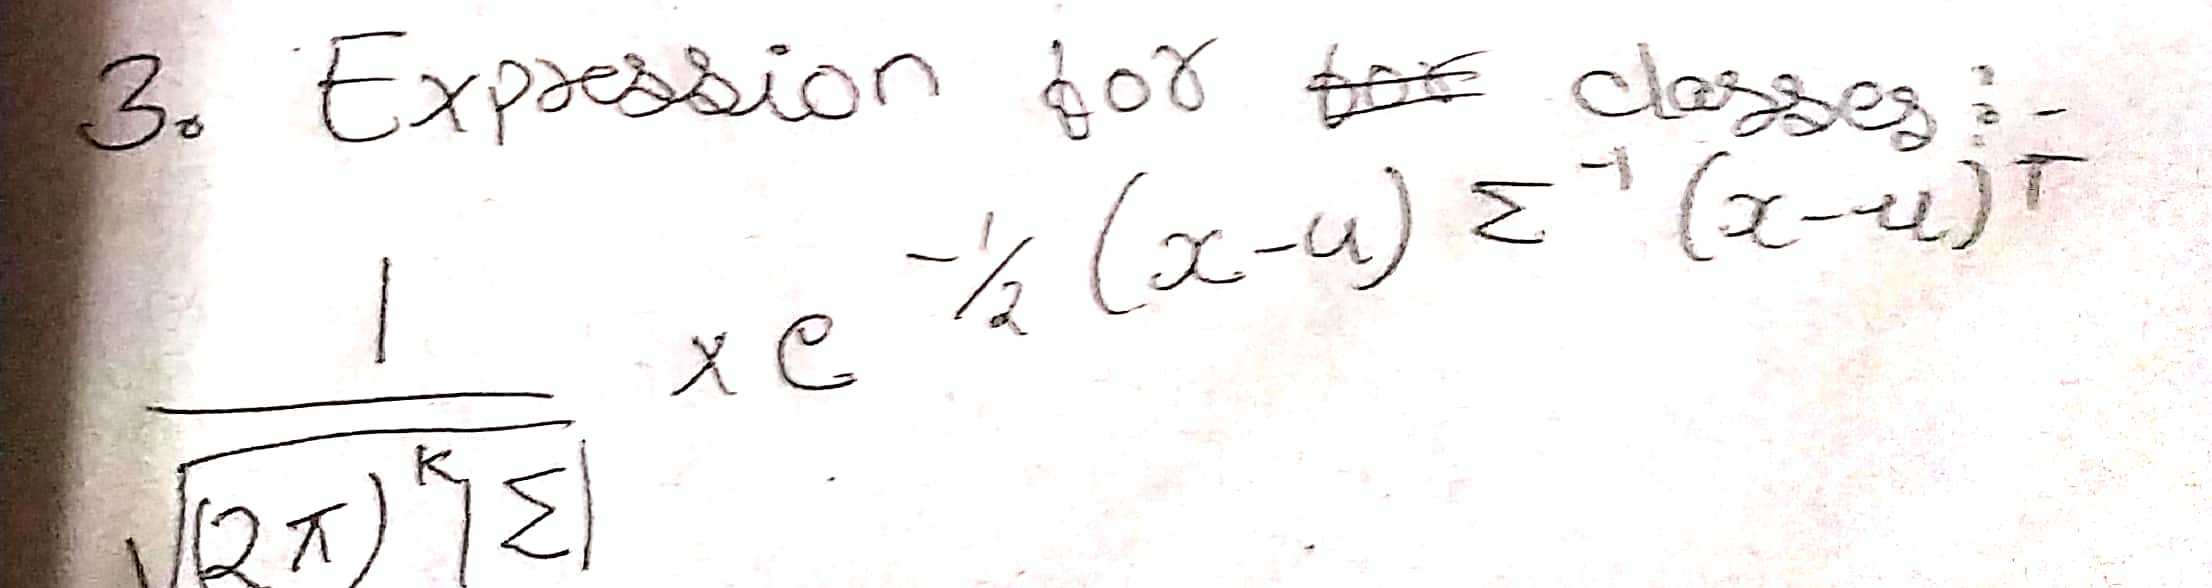 3. Expression for for classes :-
1 / √((2π)^K |Σ|) × e^(-1/2 (x-u) Σ^-1 (x-u)^T)